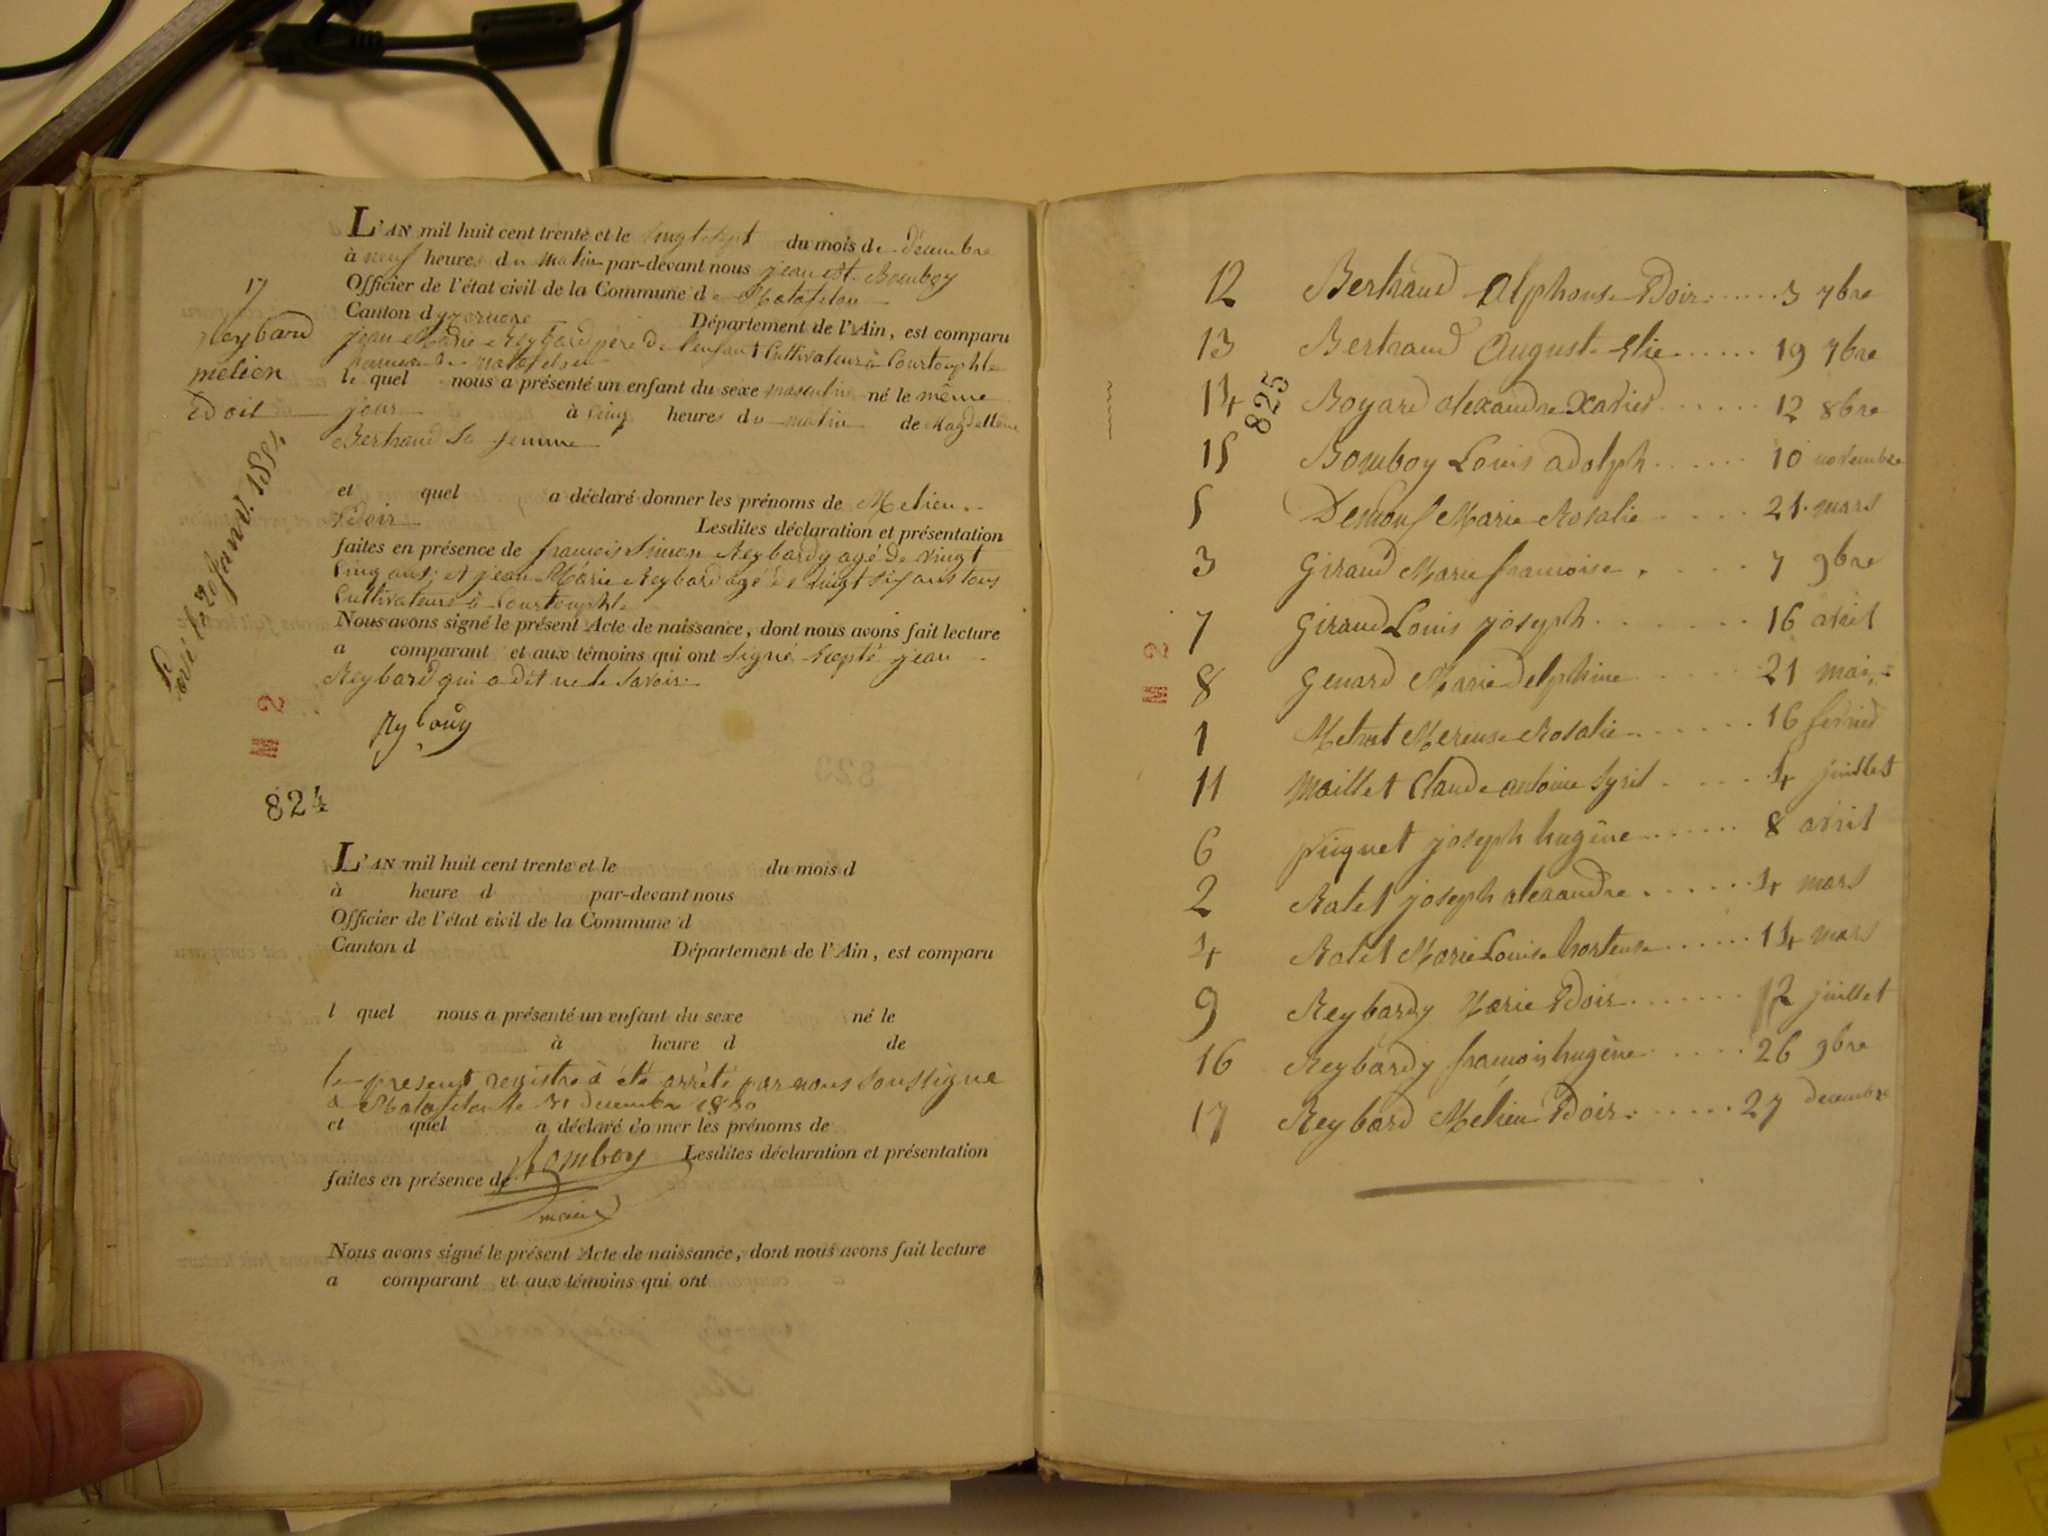 L'AN mil huit cent trente et le vingt sept du mois de décembre
à neuf heures du matin par-devant nous jean Bte Bomboy
Officier de l'état civil de la Commune de Matafelon
Canton d'yzernore Département de l'Ain, est comparu
jean Marie Reybard père de l'enfant Cultivateur à Courtouphle
paroisse de matafelon
le quel nous a présenté un enfant du sexe masculin né le même
jour à cinq heures du matin de Magdelleine
Bertrand sa femme
et quel a déclaré donner les prénoms de Melien
Edoir Lesdites déclaration et présentation
faites en présence de francois Simon Reybardy agé de vingt
cinq ans; et jean Marie Reybard agé de vingt six ans tous
Cultivateurs à Courtouphle
Nous avons signé le présent Acte de naissance, dont nous avons fait lecture
a comparant et aux témoins qui ont signé Excepté jean
Reybard qui a dit ne le savoir
17
Reybard
melien
Edoir
20 janv. 1884
2
824
L'AN mil huit cent trente et le du mois d
à heure d par-devant nous
Officier de l'état civil de la Commune d
Canton d Département de l'Ain, est comparu
l quel nous a présenté un enfant du sexe né le
à heure d de
le present registre a été arrêté par nous soussigné
a Matafelon le 31 decembre 1830
et quel a déclaré donner les prénoms de
Bomboy Lesdites déclaration et présentation
faites en présence de
maire
Nous avons signé le présent Acte de naissance, dont nous avons fait lecture
a comparant et aux témoins qui ont
12 Bertrand Alphonse Edoir 3 7bre
13 Bertrand August Elie 19 7bre
14 Boyard alexandre Xavier 12 8bre
825
15 Bomboy Louis adolph 10 novembre
5 Marie Rosalie 21 mars
3 Giraud Marie francoise 7 9bre
7 Giraud Louis joseph 16 avril
2
8 Genard Marie Delphine 21 mai
1 Rosalie 16 fevrier
11 Maillet Claude antoine Syril 4 juillet
6 joseph hugène 8 avril
2 Ratet joseph alexandre 4 mars
4 Ratet Marie Louise hortense 14 mars
9 Reybardy Marie Edoir 12 juillet
16 Reybardy francois hugène 26 9bre
17 Reybard Mélien Edoir 27 decembre